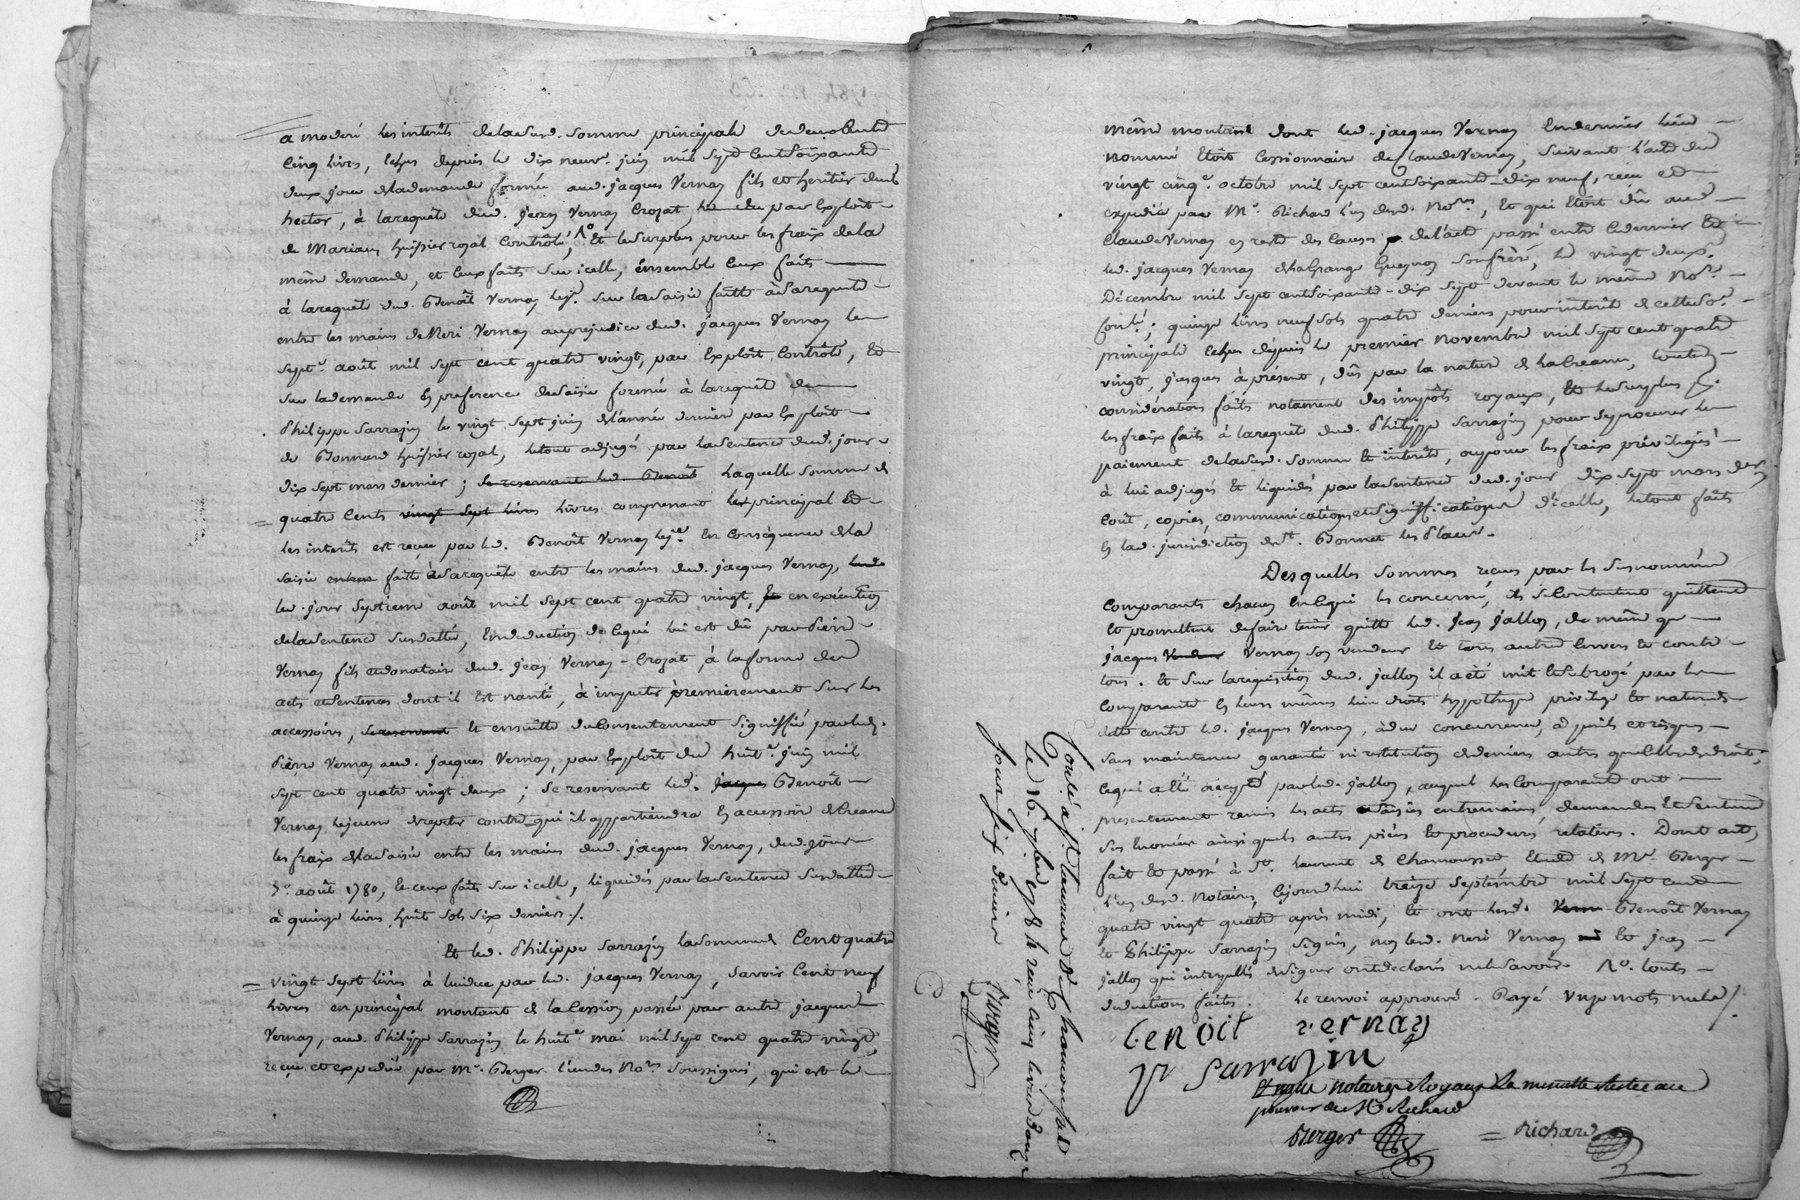 a modéré les interêts de lad. somme principale
Cinq livres, échus depuis le dix neuv.e juin mil sept cent soixante
deux jour de la demande formée aud. jacques Vernay fils et heritier dud.
hector, à la requête dud. jean Vernay Crozat, par Exploit
de Mariau huissier royal Contrôlé, Et le surplus pour les fraix de la
même demande, et ceux faits sur icelle, ensemble ceux faits
à la requête dud. Benoît Vernay lej.e sur la saisie faitte à sa requête
entre les mains de Neri Vernay au prejudice dud. jacques Vernay le
sept.e août mil sept cent quatre vingt, par Exploit Contrôlé, Et
sur la demande En preference de saisie formée à la requête de
Philippe Sarrazin le vingt sept juin de l'année derniere par Exploit
de Bonnard huissier royal, le tout adjugé par la sentence dud. jour
dix sept mars dernier; se reservant led. Benoît laquelle somme de
quatre Cents vingt sept livres livres comprenant le principal Et
les interêts est reçue par led. Benoît Vernay lej.e En Conséquence de la
saisie faitte à sa requête entre les mains dud. jacques Vernay,
led. jour septieme août mil sept cent quatre vingt, Et en exécution
de la sentence susdattée, En deduction de cequi lui est dû par Pierre
Vernay fils et donataire dud. jean Vernay-Crozat à la forme des
actes et sentences dont il Est nanti, à imputer premièrement sur les
accessoires, se reservant et ensuitte du Consentement signiffié par led.
Pierre Vernay aud. jacques Vernay, par Exploit du huit.e juin mil
sept cent quatre vingt deux; se reservant led. jacques Benoît
Vernay lejeune de repeter contre qui il appartiendra En accessoire de creance
les fraix de la saisie entre les mains dud. jacques Vernay, dud. jour
7.e août 1780, Et ceux faits sur icelle, liquidés par la sentence susdattée
à quinze livres huit sols six deniers./.
Et led. Philippe Sarrazin la somme de Cent quatre
vingt sept livres à lui due par led. jacques Vernay, savoir Cent neuf
livres en principal montant de la Cession passée par autre jacques
Vernay, aud. Philippe Sarrazin le huit.e mai mil sept cent quatre vingt,
reçue et expediée par M.e Berger l'un des No.res Soussignés, qui est le
même montant dont led. jacques Vernay Endernier lieu
nommé Etoit Cessionnaire de Claude Vernay, suivant l'acte du
vingt cinq.e octobre mil sept cent soixante-dix neuf, reçu et
expedié par M.e Richard l'un desd. No.res, Et qui Etoit dû aud.
Claude Vernay en reste des causes de l'acte passé entre ce dernier Et
led. jacques Vernay de la Grange Gueynon son frère, le vingt deux
Décembre mil sept cent soixante-dix sept devant le même No.re
quinze livres neuf sols quatre deniers pour interêt de cette so.e
principale échus depuis le premier novembre mil sept cent quatre
vingt, jusques à présent, dûs par la nature de la Creance,
considération faitte notament des impôts royaux, Et le surplus
les fraix faits à la requête dud. Philippe Sarrazin pour se procurer le
paiement de lad. somme Et interêts, ou pour les fraix priviligiés
à lui adjugés Et liquidés par la sentence dud. jour dix sept mars der.
Coût, copies, communications et significations d'icelle, le tout faits
En lad. jurisdiction de S.t Bonnet les Places.
Desquelles sommes reçues par les susnommés
Comparants chacun En ce qui les concerne, ils se Contentent quittent
Et promettent de faire tenir quitte led. jean jallon, de même que
jacques Vernay son vendeur Et tous autres Envers Et contre
tous. Et sur la requisition dud. jallon il a été mit Et subrogé par les
Comparants En leurs mêmes lieu droits hypotheque privilege Et nature de
dette contre led. jacques Vernay, à due concurrence, à perils et risques
sans maintenue garantie ni restitution de deniers autres
cequi a été accepté par led. jallon, auquel les Comparants ont
presentement remis les actes saisies entremains, demandes Et sentence
ainsi que les autres pièces Et procedures relatives. Dont acte,
fait Et passé à S.t Laurent de Chamousset Etude de M.e Berger
l'un desd. Notaires, Cejourd'hui treize septembre mil sept cent
quatre vingt quatre après midi, Et ont lesd. Benoît Vernay
Et Philippe Sarrazin signés, non led. Neri Vernay Et jean
jallon qui interpellés de signer ont declaré ne le savoir. toute
deductions faites. le renvoi approuvé. Rayé vingt mots nuls./.
benoit vernay
p sarrazin
Et nous notaires Royaux La minutte restée au
pouvoir de M.e Richard
Berger
= Richard
Conté à S.t Laurent de Chamousset
Le 16. 7bre 1784 reçu cinq livres douze
sous six deniers